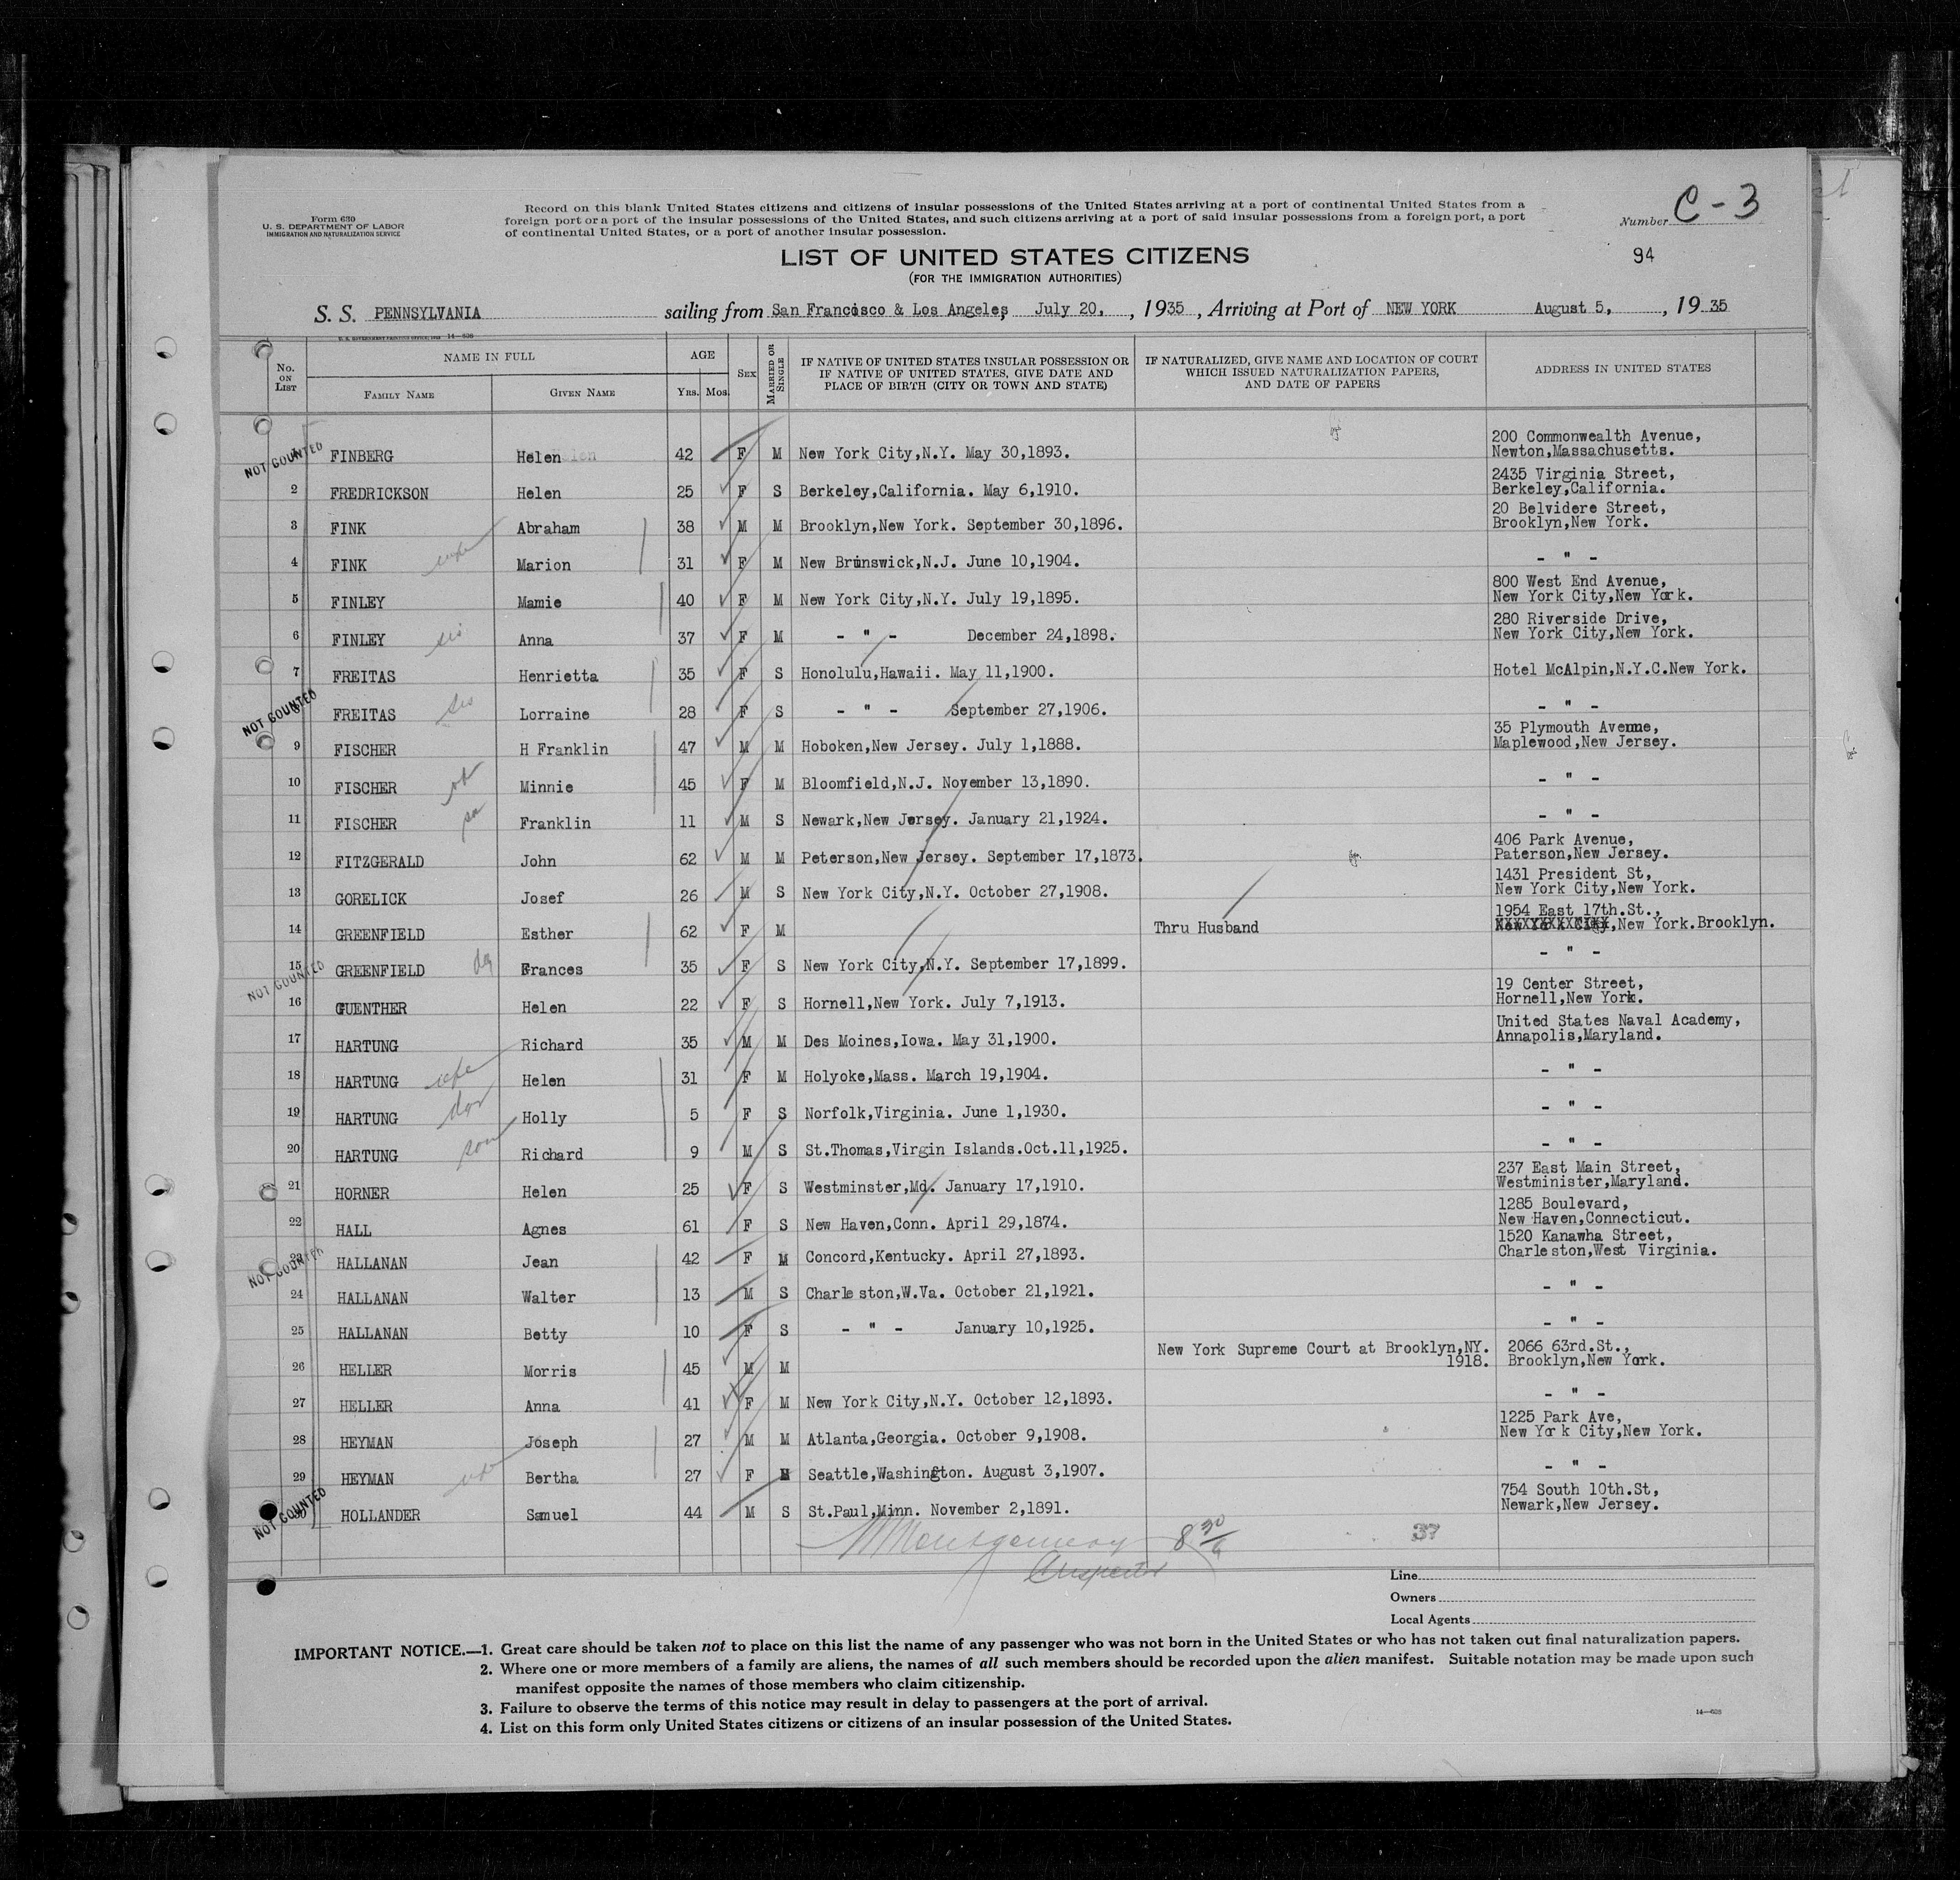 Form 630
U. S. DEPARTMENT OF LABOR
IMMIGRATION AND NATURALIZATION SERVICE
Record on this blank United States citizens and citizens of insular possessions of the United States arriving at a port of continental United States from a
foreign port or a port of the insular possessions of the United States, and such citizens arriving at a port of said insular possessions from a foreign port, a port
of continental United States, or a port of another insular possession.
Number C-3
LIST OF UNITED STATES CITIZENS
(FOR THE IMMIGRATION AUTHORITIES)
94
S. S. PENNSYLVANIA sailing from San Francisco & Los Angeles, July 20, , 1935 , Arriving at Port of NEW YORK August 5, , 1935
No. ON LIST
NAME IN FULL
FAMILY NAME GIVEN NAME
AGE
Yrs. Mos.
SEX
MARRIED OR SINGLE
IF NATIVE OF UNITED STATES INSULAR POSSESSION OR
IF NATIVE OF UNITED STATES, GIVE DATE AND
PLACE OF BIRTH (CITY OR TOWN AND STATE)
IF NATURALIZED, GIVE NAME AND LOCATION OF COURT
WHICH ISSUED NATURALIZATION PAPERS,
AND DATE OF PAPERS
ADDRESS IN UNITED STATES
NOT COUNTED FINBERG Helen 42 F M New York City,N.Y. May 30,1893. 200 Commonwealth Avenue,
Newton,Massachusetts.
2 FREDRICKSON Helen 25 F S Berkeley,California. May 6,1910. 2435 Virginia Street,
Berkeley,California.
3 FINK Abraham 38 M M Brooklyn,New York. September 30,1896. 20 Belvidere Street,
Brooklyn,New York.
4 FINK wife Marion 31 F M New Brunswick,N.J. June 10,1904. - " -
5 FINLEY Mamie 40 F M New York City,N.Y. July 19,1895. 800 West End Avenue,
New York City,New York.
6 FINLEY sis Anna 37 F M - " - December 24,1898. 280 Riverside Drive,
New York City,New York.
7 FREITAS Henrietta 35 F S Honolulu,Hawaii. May 11,1900. Hotel McAlpin,N.Y.C.New York.
NOT COUNTED 8 FREITAS sis Lorraine 28 F S - " - September 27,1906. - " -
9 FISCHER H Franklin 47 M M Hoboken,New Jersey. July 1,1888. 35 Plymouth Avenue,
Maplewood,New Jersey.
10 FISCHER Minnie 45 F M Bloomfield,N.J. November 13,1890. - " -
11 FISCHER Franklin 11 M S Newark,New Jersey. January 21,1924. - " -
12 FITZGERALD John 62 M M Peterson,New Jersey. September 17,1873. 406 Park Avenue,
Paterson,New Jersey.
13 GORELICK Josef 26 M S New York City,N.Y. October 27,1908. 1431 President St,
New York City,New York.
14 GREENFIELD Esther 62 F M Thru Husband 1954 East 17th.St.,
New York City,New York.Brooklyn.
NOT COUNTED 15 GREENFIELD Frances 35 F S New York City,N.Y. September 17,1899. - " -
16 GUENTHER Helen 22 F S Hornell,New York. July 7,1913. 19 Center Street,
Hornell,New York.
17 HARTUNG Richard 35 M M Des Moines,Iowa. May 31,1900. United States Naval Academy,
Annapolis,Maryland.
18 HARTUNG wife Helen 31 F M Holyoke,Mass. March 19,1904. - " -
19 HARTUNG dar Holly 5 F S Norfolk,Virginia. June 1,1930. - " -
20 HARTUNG son Richard 9 M S St.Thomas,Virgin Islands.Oct.11,1925. - " -
21 HORNER Helen 25 F S Westminster,Md. January 17,1910. 237 East Main Street,
Westminister,Maryland.
22 HALL Agnes 61 F S New Haven,Conn. April 29,1874. 1285 Boulevard,
New Haven,Connecticut.
NOT COUNTED 23 HALLANAN Jean 42 F M Concord,Kentucky. April 27,1893. 1520 Kanawha Street,
Charleston,West Virginia.
24 HALLANAN Walter 13 M S Charleston,W.Va. October 21,1921. - " -
25 HALLANAN Betty 10 F S - " - January 10,1925. - " -
26 HELLER Morris 45 M M New York Supreme Court at Brooklyn,NY. 1918. 2066 63rd.St.,
Brooklyn,New York.
27 HELLER Anna 41 F M New York City,N.Y. October 12,1893. - " -
28 HEYMAN Joseph 27 M M Atlanta,Georgia. October 9,1908. 1225 Park Ave,
New York City,New York.
29 HEYMAN Bertha 27 F M Seattle,Washington. August 3,1907. - " -
NOT COUNTED 30 HOLLANDER Samuel 44 M S St.Paul,Minn. November 2,1891. 754 South 10th.St,
Newark,New Jersey.
Montgomery 8 30/6 37
Inspector
Line
Owners
Local Agents
IMPORTANT NOTICE.—1. Great care should be taken not to place on this list the name of any passenger who was not born in the United States or who has not taken out final naturalization papers.
2. Where one or more members of a family are aliens, the names of all such members should be recorded upon the alien manifest. Suitable notation may be made upon such
manifest opposite the names of those members who claim citizenship.
3. Failure to observe the terms of this notice may result in delay to passengers at the port of arrival.
4. List on this form only United States citizens or citizens of an insular possession of the United States.